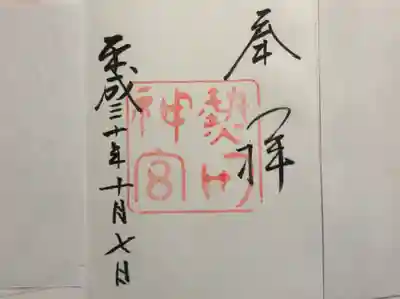 奉拝
熱田
神宮
平成三十年十月七日